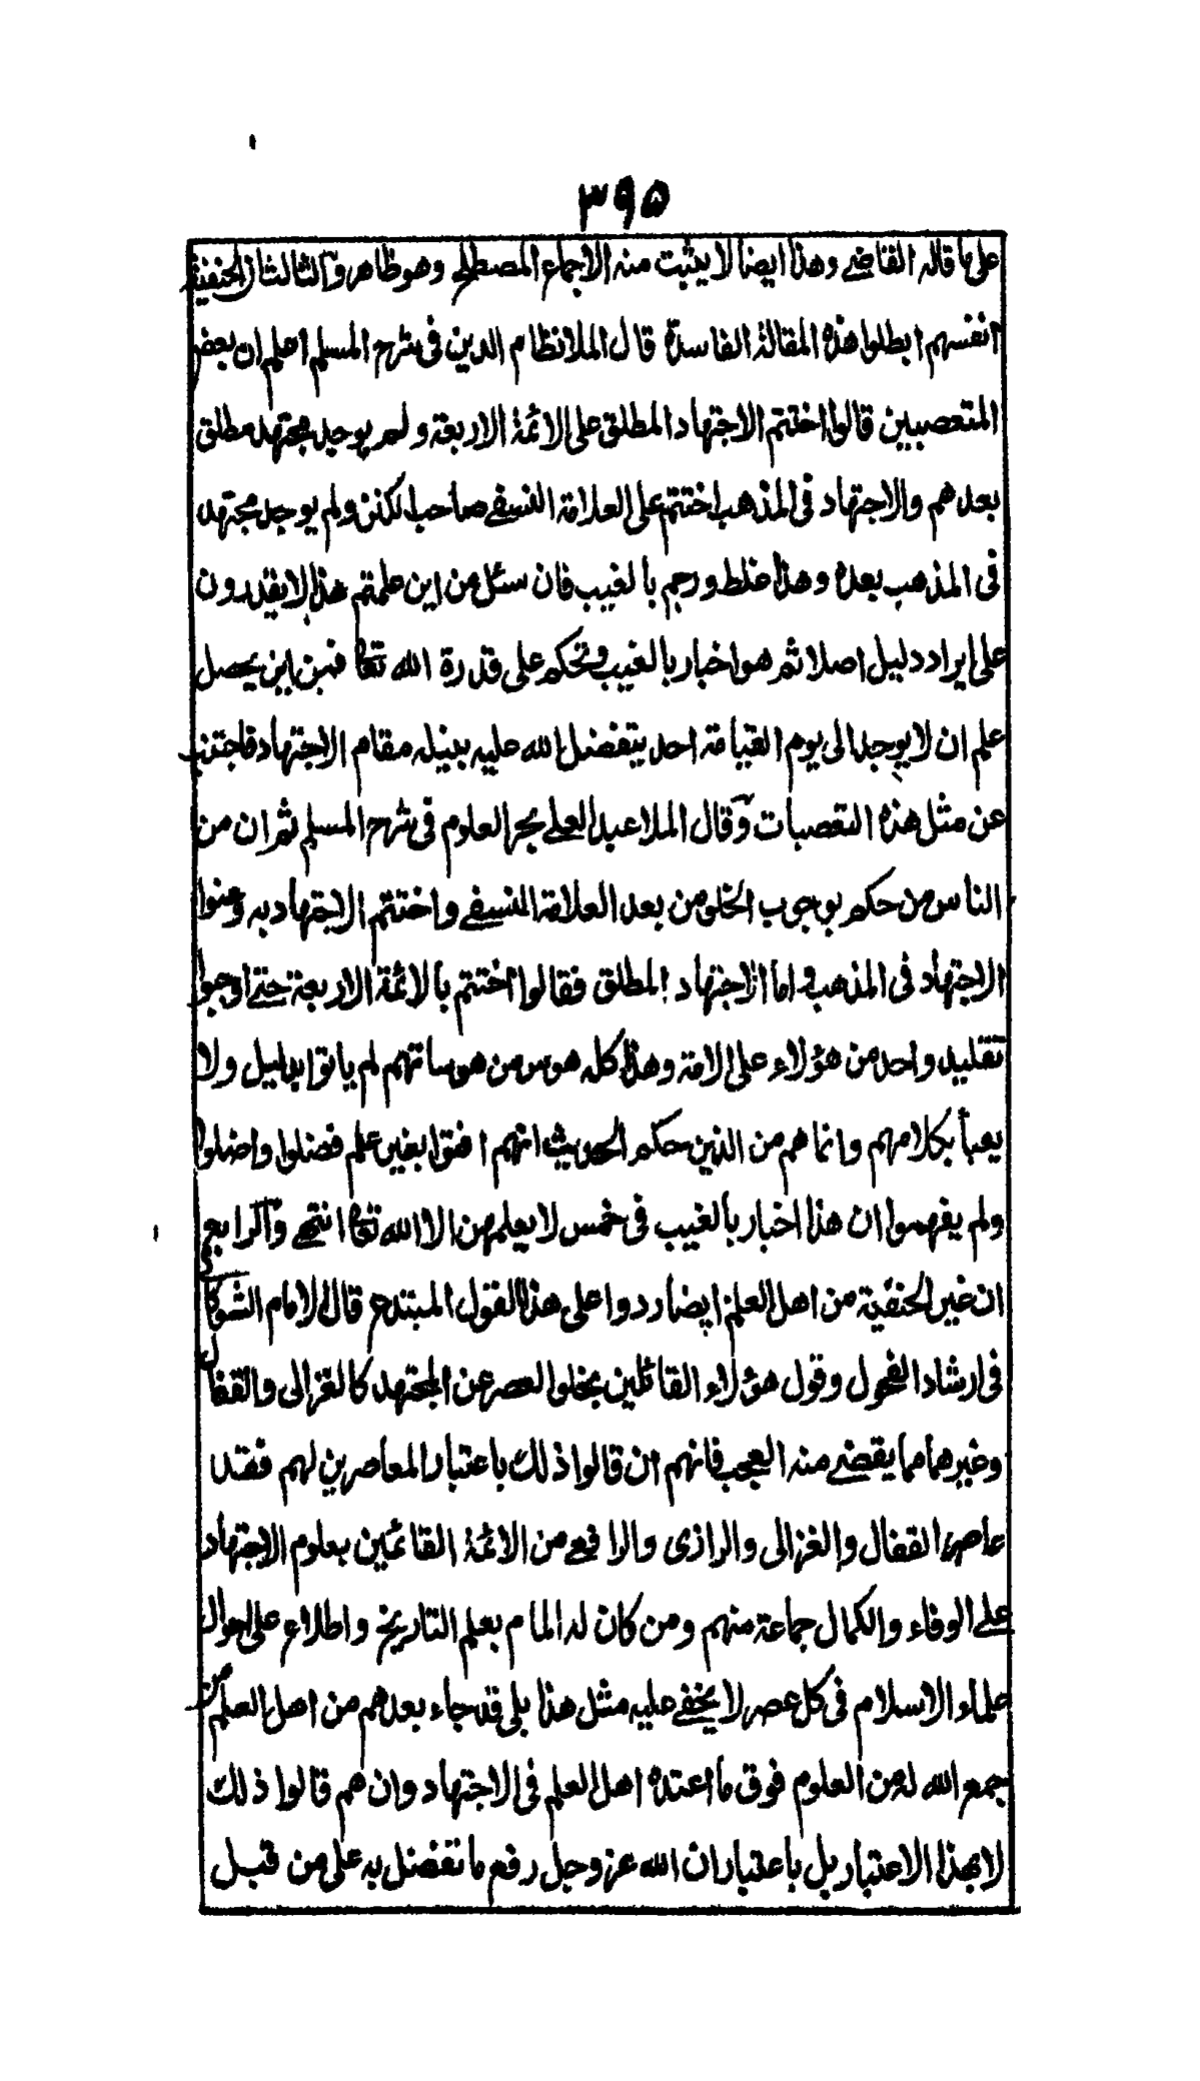 ٣٩٥
على ما قاله القاضے وهذا ايضا لا يثبت منه الاجماع المصطلح وهو ظاهر والثالث ان الحنفية
انفسهم ابطلوا هذه المقالة الفاسدة قال الملا نظام الدين فى شرح المسلم اعلم ان بعض
المتعصبين قالوا اختتم الاجتهاد المطلق على الائمة الاربعة ولم يوجد مجتهد مطلق
بعدهم والاجتهاد فى المذهب اختتم على العلامة النسفے صاحب الكنز ولم يوجد مجتهد
فى المذهب بعده وهذا غلط ورجم بالغيب فان سئل من اين علمتم هذا لا يقدرون
على ايراد دليل اصلا ثم هو اخبار بالغيب وتحكم على قدرة الله تعا فمن اين يحصل
علم ان لا يوجد الى يوم القيامة احد يتفضل الله عليه بنيله مقام الاجتهاد فاجتنب
عن مثل هذه التعصبات وقال الملا عبد العلے بحر العلوم فى شرح المسلم ثم ان من
الناس من حكم بوجوب الخلو من بعد العلامة النسفے واختتم الاجتهاد به وعنوا
الاجتهاد فى المذهب واما الاجتهاد المطلق فقالوا اختتم بالائمة الاربعة حتے اوجبوا
تقليد واحد من هؤلاء على الامة وهذا كله هوس من هوساتهم لم ياتوا بدليل ولا
يعبأ بكلامهم وانما هم من الذين حكم الحديث انهم افتوا بغير علم فضلوا واضلوا
ولم يفهموا ان هذا اخبار بالغيب فى خمس لا يعلمهن الا الله تعا انتهے والرابع
ان غير الحنفية من اهل العلم ايضا ردوا على هذا القول المبتدع قال الامام الشوكانى
فى ارشاد الفحول وقول هؤلاء القائلين بخلو العصر عن المجتهد كالغزالى والقفال
وغيرهما مما يقضے منه العجب فانهم ان قالوا ذلك باعتبار المعاصرين لهم فقد
عاصر القفال والغزالى والرازى والرافعے من الائمة القائمين بعلوم الاجتهاد
علے الوفاء والكمال جماعة منهم ومن كان له المام بعلم التاريخ واطلاع على احوال
علماء الاسلام فى كل عصر لا يخفے عليه مثل هذا بلى قد جاء بعدهم من اهل العلم من
جمع الله له من العلوم فوق ما اعتده اهل العلم فى الاجتهاد وان هم قالوا ذلك
لا بهذا الاعتبار بل باعتبار ان الله عز وجل رفع ما تفضل به على من قبل